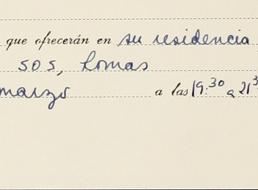 que ofrecerán en su residencia
SOS, Lomas
marzo a las 19:30 a 21:3